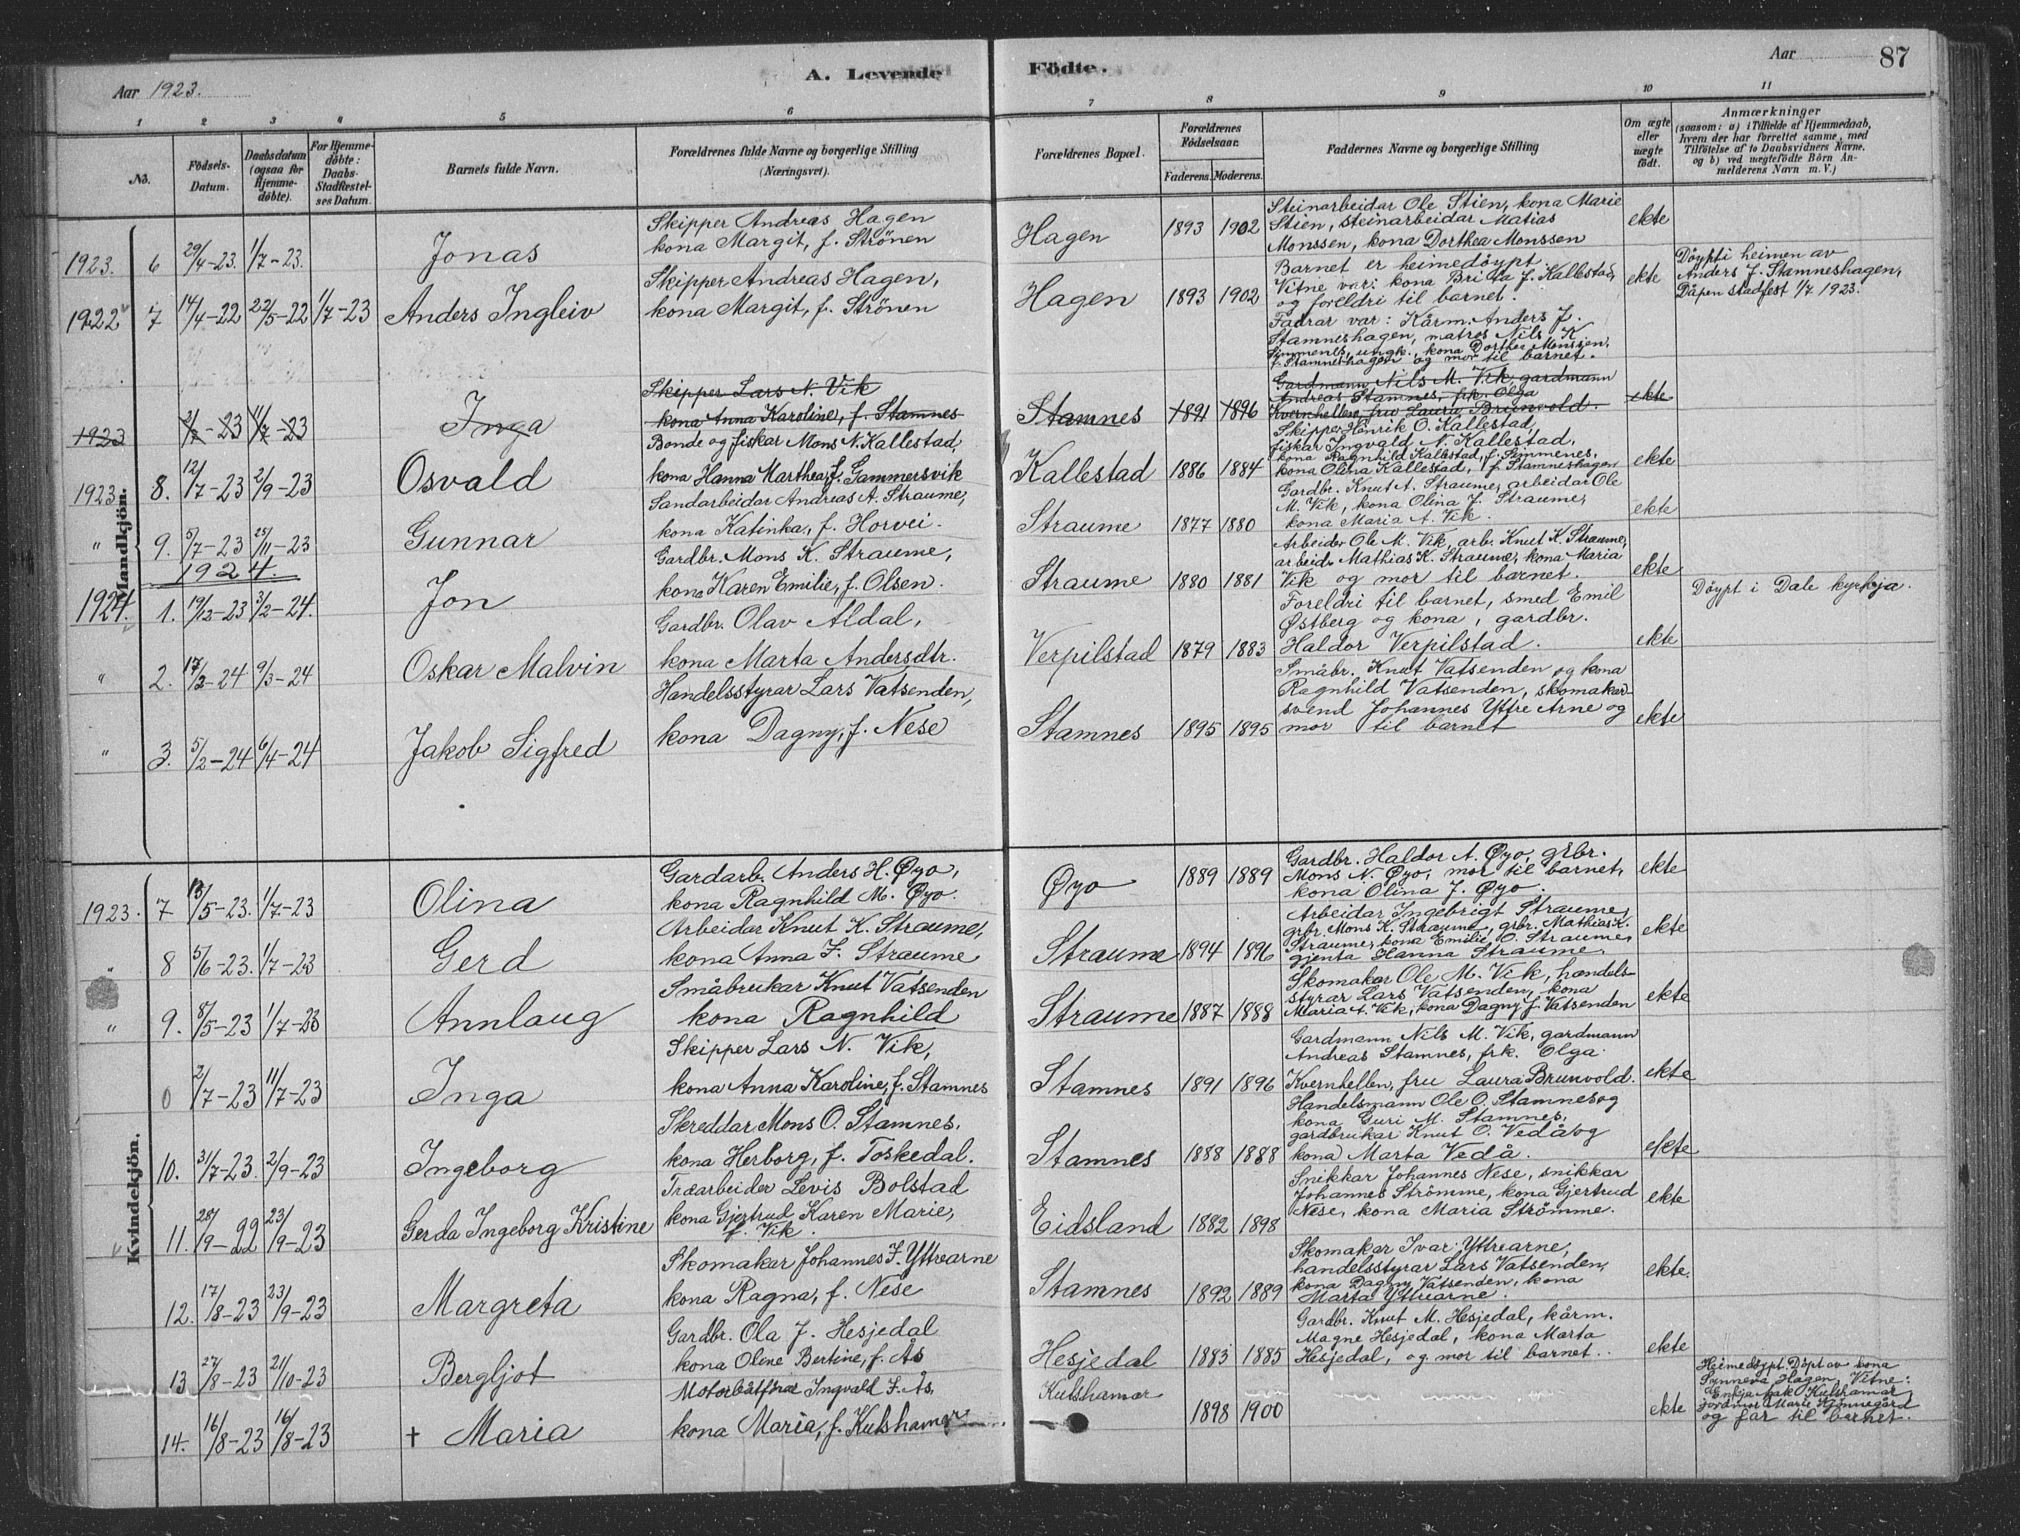 Aar 1923.
A. Levende
Födte.
Aar
87
1
2
3
4
5
6
7
8
9
10
11
No.
Födsels-
Datum.
Daabsdatum
(ogsaa for
Hjemme-
döbte).
For Hjemme-
döbte:
Daabs-
Stadfæstel-
ses Datum.
Barnets fulde Navn.
Forældrenes fulde Navne og borgerlige Stilling
(Næringsvei).
Forældrenes Bopæl.
Forældrenes
Födselsaar.
Faderens.
Moderens.
Faddernes Navne og borgerlige Stilling
Om ægte
eller
uægte
födt.
Anmærkninger
(saasom: a) i Tilfælde af Hjemmedaab,
hvem der har forrettet samme, med
Tilföielse af to Daabsvidners Navne.
og b) ved uægtefödte Börn An-
melderens Navn m. V.)
Mandkjön.
1923. 6 29/4-23. 1/7-23.
Jonas
Skipper Andreas Hagen
kona Margit, f. Strönen
Hagen 1893 1902
Steinarbeidar Ole Stien, kona Marie
Stien, steinarbeidar Matias
Monssen, kona Dorthea Monssen
ekte
1922 7 14/4-22 22/5-22 1/7-23
Anders Ingleiv
Skipper Andreas Hagen,
kona Margit, f. Strönen
Hagen 1893 1902
Barnet er heimedöypt.
Vitne var: kona Brita J. Kallestad,
og foreldri til barnet.
Fadrar var: Kårm. Anders J.
Stamneshagen, matros Nils K.
Simmenes, ungk., kona Dorthea Monssen,
f. Stamneshagen og mor til barnet.
ekte
Döypt i heimen av
Anders J. Stamneshagen,
Dåpen stadfest 1/7 1923.
1923 2/7-23 11/7-23
Inga
Skipper Lars N. Vik
kona Anna Karoline, f. Stamnes
Stamnes 1891 1896
Gardmann Nils M. Vik, gardmann
Andreas Stamnes, frk. Olga
Kvernhellen, fru Laura Brunvold.
ekte
1923. 8. 12/7-23 2/9-23
Osvald
Bonde og fiskar Mons N. Kallestad,
kona Hanna Marthea, f. Gammersvik
Kallestad 1886 1884
Skipper Henrik O. Kallestad,
fiskar Ingvald N. Kallestad,
kona Ragnhild Kallestad, f. Simmenes,
kona Olina Kallestad, f. Stamneshagen
ekte
" 9. 5/7-23 25/11-23
Gunnar
Sandarbeidar Andreas A. Straume,
kona Katinka, f. Horvei.
Straume 1877 1880
Gardbr. Knut A. Straume, arbeidar Ole
M. Vik, kona Olina J. Straume,
kona Maria A. Vik.
ekte
1924.
1924. 1. 19/12-23 3/2-24.
Jon
Gardbr. Mons K. Straume,
kona Karen Emilie, f. Olsen.
Straume 1880 1881
Arbeider Ole M. Vik, arb. Knut K. Straume,
arbeidr Mathias K. Straume, kona Maria
Vik og mor til barnet.
ekte
Döypt i Dale kyrkja.
" 2. 17/2-24 9/3-24
Oskar Malvin
Gardbr. Olav Aldal,
kona Marta Andersdtr.
Verpilstad 1879 1883
Foreldri til barnet, smed Emil
Østberg og kona, gardbr.
Haldor Verpilstad.
ekte
" 3. 5/2-24 6/4-24
Jakob Sigfred
Handelsstyrar Lars Vatsenden,
kona Dagny, f. Nese
Stamnes 1895 1895
Småbr. Knut Vatsenden og kona
Ragnhild Vatsenden, skomakar-
svend Johannes Yttre Arne og
mor til barnet
ekte
Kvindekjön.
1923. 7 13/5-23. 1/7-23
Olina
Gardarb. Anders H. Øyo,
kona Ragnhild M. Øyo.
Øyo 1889 1889
Gardbr. Haldor A. Øyo, grbr.
Mons N. Øyo, mor til barnet,
kona Olina J. Øyo.
ekte
" 8 5/6-23. 1/7-23
Gerd
Arbeidar Knut K. Straume,
kona Anna J. Straume
Straume 1894 1896
Arbeidar Ingebrigt Straume,
grbr. Mons K. Straume, grbr. Mathias K.
Straume, kona Emilie O. Straume,
gjenta Hanna Straume.
ekte
" 9. 8/5-23 1/7-23
Annlaug
Småbrukar Knut Vatsenden
kona Ragnhild
Straume 1887 1888
Skomakar Ole M. Vik, handels-
styrar Lars Vatsenden, kona
Maria A. Vik, kona Dagny f. Vatsenden
ekte
0 2/7-23 11/7-23
Inga
Skipper Lars N. Vik,
kona Anna Karoline, f. Stamnes
Stamnes 1891 1896
Gardmann Nils M. Vik, gardmann
Andreas Stamnes, frk. Olga
Kvernhellen, fru Laura Brunvold.
ekte
10. 3/7-23. 2/9-23
Ingeborg
Skreddar Mons O. Stamnes,
kona Herborg, f. Toskedal.
Stamnes 1888 1888
Handelsmann Ole O. Stamnes og
kona Guri M. Stamnes,
gardbrukar Knut O. Vedå og
kona Marta Vedå.
ekte
11. 28/9-22 23/9-23
Gerda Ingeborg Kristine
Træarbeider Levis Bolstad
kona Gjertrud Karen Marie,
f. Vik.
Eidsland 1882 1898
Snikkar Johannes Nese, snikkar
Johannes Strömme, kona Gjertrud
Nese, kona Maria Strömme.
ekte
12. 17/8-23 23/9-23
Margreta
Skomakar Johannes J. Yttrearne
kona Ragna, f. Nese
Stamnes 1892 1889
Skomakar Ivar Yttrearne,
handelsstyrar Lars Vatsenden,
kona Dagny Vatsenden, kona
Marta Yttrearne.
ekte.
13 27/8-23 21/10-23
Bergljot
Gardbr. Ola J. Hesjedal
kona Oline Bertine, f. Ås
Hesjedal 1883 1885
Gardbr. Knut M. Hesjedal, kårm.
Magne Hesjedal, kona Marta
Hesjedal, og mor til barnet.
ekte
14. 16/8-23 16/8-23
† Maria
Motorbåtförar Ingvald J. Ås,
kona Maria, f. Kulshamar
Kulshamar
1898 1900
ekte
Heimedöypt. Döpt av kona
Synneva Hagen. Vitne:
Enkja Kulshamar,
jordmor Marte Hjønnegård
og far til barnet.